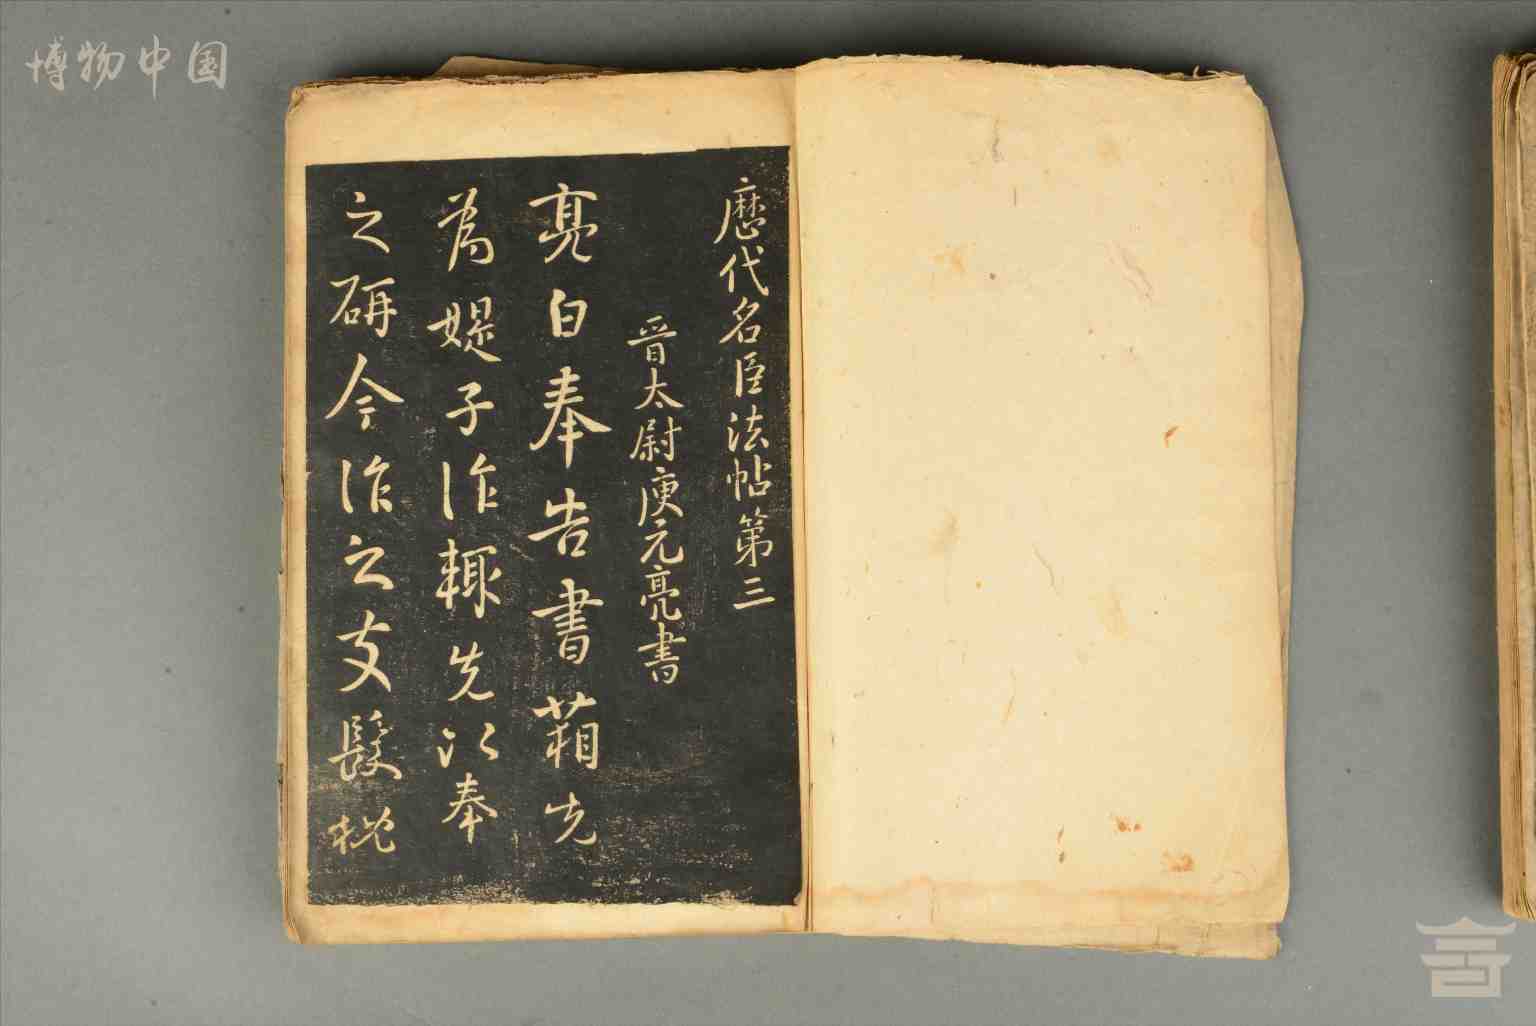 博物中国
歷代名臣法帖第三
晋太尉庾元亮書
亮白奉告書箱先
為媞子作輙先以奉
之研今作之支髮枕